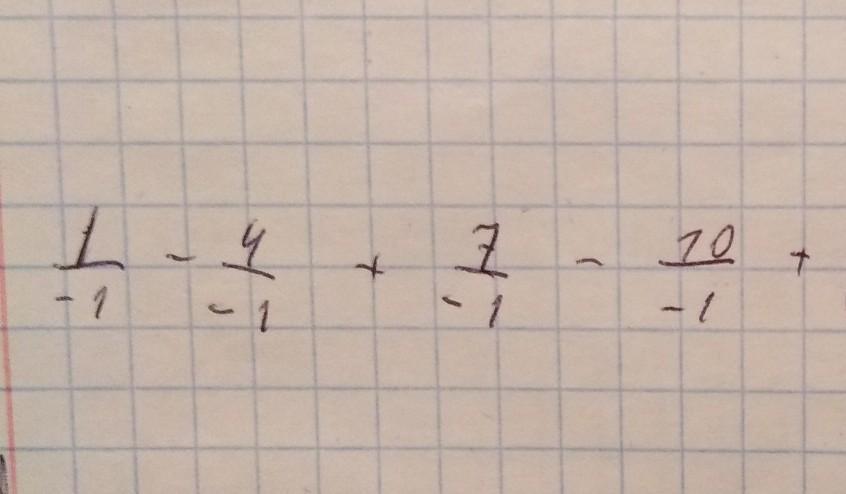 1/-1 - 4/-1 + 7/-1 - 10/-1 +